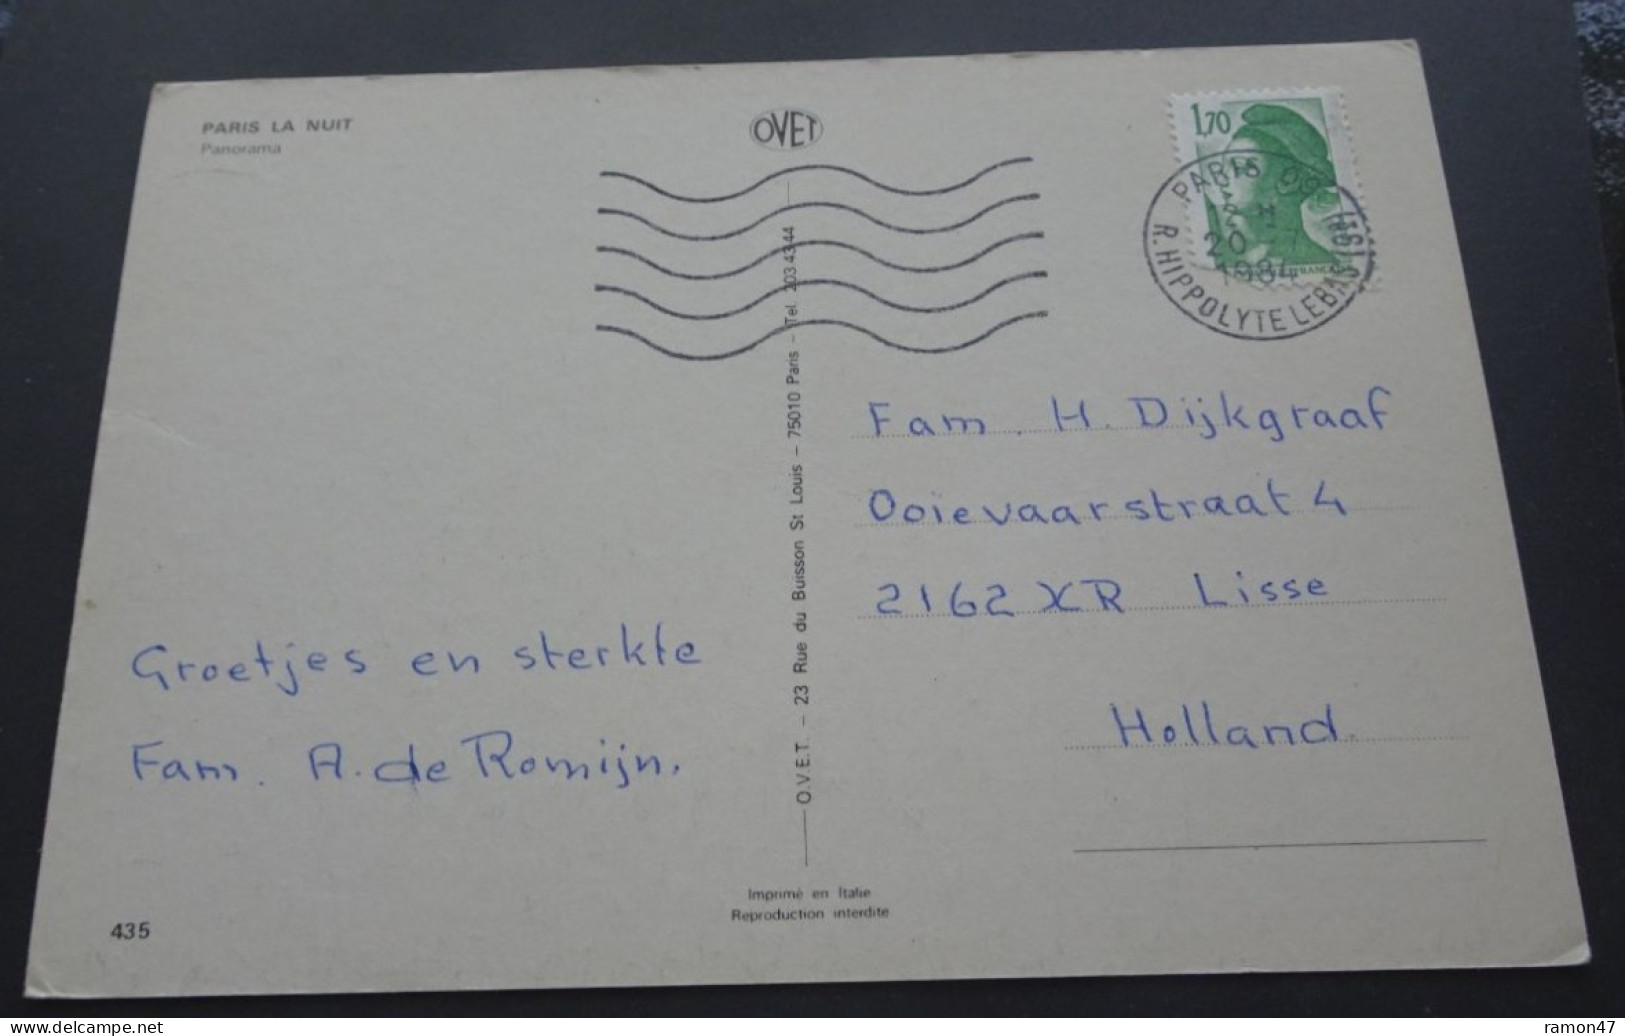 PARIS LA NUIT
Panorama
OVET
1,70
PARIS 09
20
1984
R. HIPPOLYTE LEBAS
FRANCE
Fam. H. Dijkgraaf
Ooievaarstraat 4
2162 XR Lisse
Holland.
Groetjes en sterkte
Fam. A. de Romijn.
O.V.E.T. – 23 Rue du Buisson St Louis – 75010 Paris – Tel. 203 43 44
Imprimé en Italie
Reproduction interdite
435
ramon47